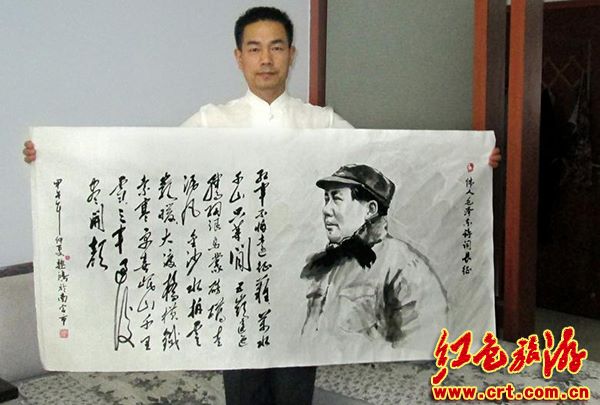 伟人毛泽东诗词长征
红军不怕远征难万水
千山只等闲五岭逶迤
腾细浪乌蒙磅礴走
泥丸金沙水拍云
崖暖大渡桥横铁
索寒更喜岷山千里
雪三军过后
尽开颜
甲午年仲夏於南宫市
红色旅游
www.crt.com.cn